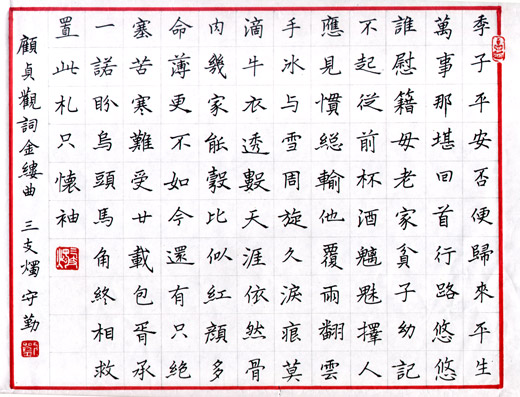 季子平安否便歸來平生
萬事那堪回首行路悠悠
誰慰籍母老家貧子幼記
不起從前杯酒魑魅擇人
應見慣總輸他覆雨翻雲
手冰与雪周旋久淚痕莫
滴牛衣透數天涯依然骨
肉幾家能彀比似紅顏多
命薄更不如今還有只絕
塞苦寒難受廿載包胥承
一諾盼烏頭馬角終相救
置此札只懷袖
顧貞觀詞金縷曲 三支燭 守勤